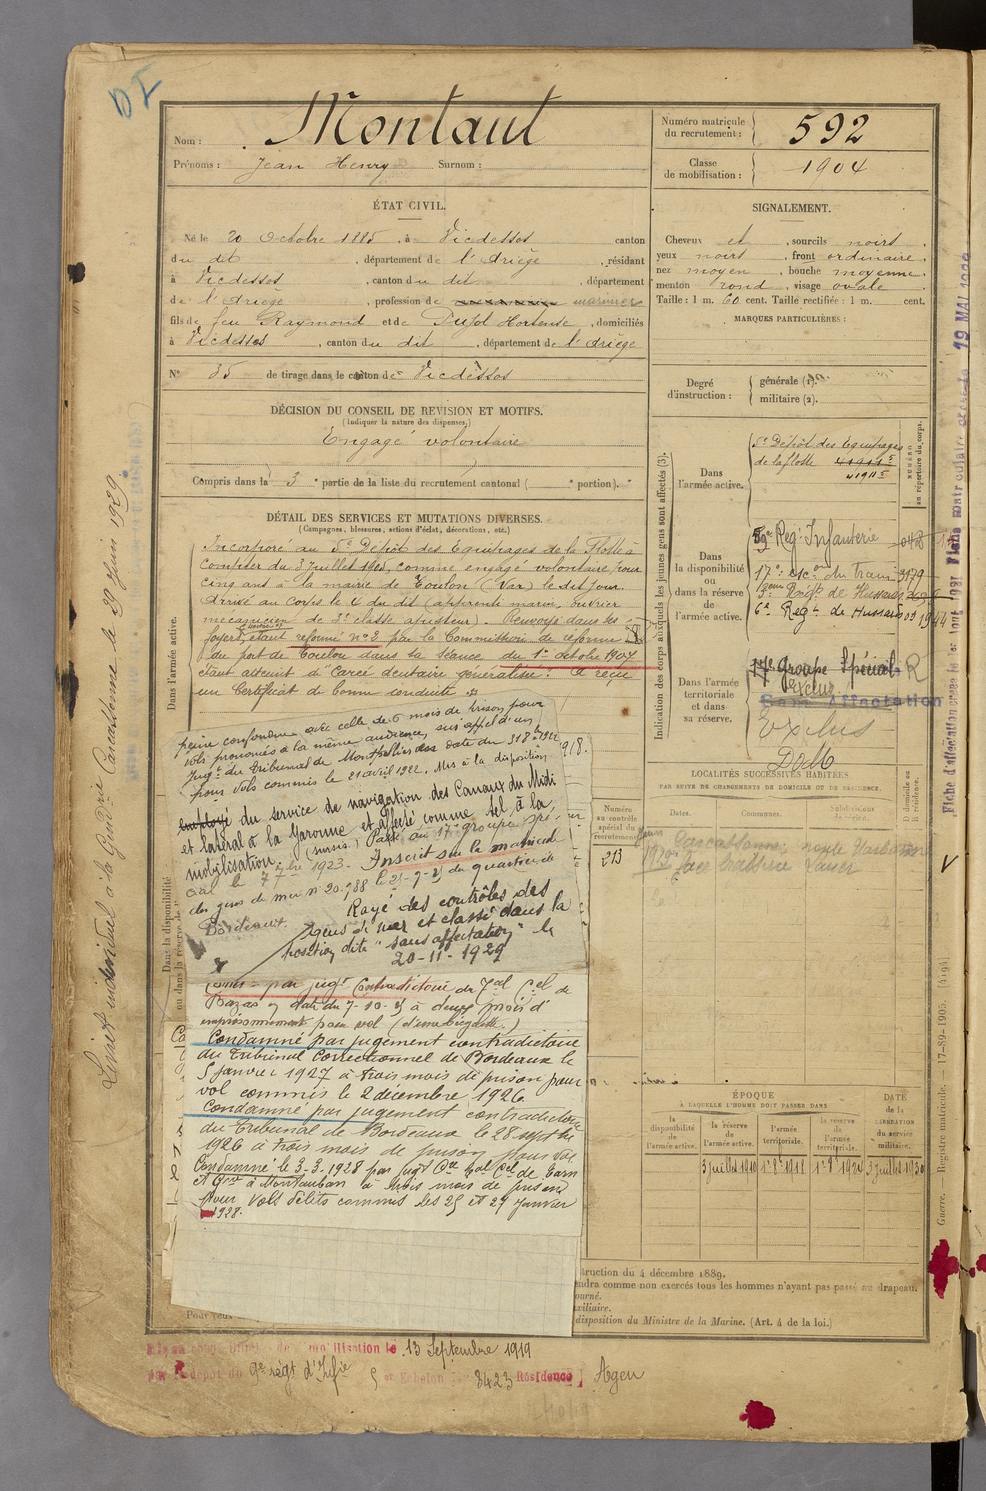 Montaut
Nom :
Prénoms : Jean Henry Surnom :
Numéro matricule du recrutement : 592
Classe de mobilisation : 1904
ÉTAT CIVIL.
Né le 20 Octobre 1885, à Vicdessos canton
du dit, département de l'Ariège, résidant
à Vicdessos, canton du dit, département
de l'Ariège, profession de marinier
fils de feu Raymond et de Pujol Hortense, domiciliés
à Vicdessos, canton du dit, département de l'Ariège
N° 35 de tirage dans le canton de Vicdessos
SIGNALEMENT.
Cheveux et, sourcils noirs,
yeux noirs, front ordinaire,
nez moyen, bouche moyenne,
menton rond, visage ovale.
Taille : 1 m. 60 cent. Taille rectifiée : 1 m. cent.
MARQUES PARTICULIÈRES :
Degré d'instruction : générale (1).
militaire (2).
DÉCISION DU CONSEIL DE REVISION ET MOTIFS.
(Indiquer la nature des dispenses.)
Engagé volontaire
Compris dans la 3e partie de la liste du recrutement cantonal ( e portion).
DÉTAIL DES SERVICES ET MUTATIONS DIVERSES.
(Campagnes, blessures, actions d'éclat, décorations, etc.)
Dans l'armée active.
Incorporé au 5e Dépôt des Equipages de la Flotte à
compter du 3 Juillet 1905, comme engagé volontaire pour
cinq ans à la mairie de Toulon (Var) le dit jour.
Arrivé au corps le 4 du dit (apprenti marin, ouvrier
mécanicien de 3e classe ajusteur). Renvoyé dans ses
foyers, étant réformé n° 2 par la Commission de réforme
du port de Toulon dans la séance du 1er octobre 1907
étant atteint d'"Carie dentaire généralisée". A reçu
un Certificat de bonne conduite
peine confondue avec celle de 6 mois de prison pour
vols prononcés à la même audience, sur appel d'un
Jugt du Tribunal de Montpellier en date du 31 8bre 1922
pour vols commis le 21 avril 1922. Mis à la disposition
employé du service de navigation des Canaux du Midi
et latéral à la Garonne et affecté comme tel, à la
mobilisation. Passé au 17e groupe spé-
cial le 7 7bre 1923. Inscrit sur la matricule
des gens de mer n° 20.988 le 25-9-25 du quartier de
Bordeaux. Rayé des contrôles des
gens de mer et classé dans la
position dite "sans affectation" le
20-11-1929
par jugt Contradictoire du Tal Cel de
Bazas en date du 7-10-25 à deux mois d'
emprisonnement pour vol
Condamné par jugement contradictoire
du Tribunal Correctionnel de Bordeaux le
5 janvier 1927 à trois mois de prison pour
vol commis le 2 décembre 1926
Condamné par jugement contradictoire
du Tribunal de Bordeaux le 28 septbre
1926 à trois mois de prison pour vol
Condamné le 3-3-1928 par jugt Cre Tal Cel de Tarn
et Gne à Montauban à trois mois de prison
pour vols délits commis les 25 et 27 Janvier
1928.
Dans la disponibilité ou dans la réserve de l'
Indication des corps auxquels les jeunes gens sont affectés (3).
NUMÉRO au répertoire du corps.
Dans l'armée active.
5e Dépôt des Equipages
de la flotte 41911 5
41911 5
Dans la disponibilité ou dans la réserve de l'armée active.
59e Reg. Infanterie
17e Esc. du Train 3179
Regt de Hussards
6e Regt de Hussards
Dans l'armée territoriale et dans sa réserve.
17e Groupe Spécial
exclus
Sans Affectation
Exclus
LOCALITÉS SUCCESSIVES HABITÉES
PAR SUITE DE CHANGEMENTS DE DOMICILE OU DE RÉSIDENCE.
D domicile ou R résidence.
Numéro au contrôle spécial du recrutement.
Dates. Communes. Subdivisions de région.
213
Carcassonne, route Narbonne
ÉPOQUE
À LAQUELLE L'HOMME DOIT PASSER DANS
la disponibilité de l'armée active.
la réserve de l'armée active.
l'armée territoriale.
la réserve de l'armée territoriale.
DATE de la LIBÉRATION du service militaire.
3 juillet 1910
1er 8bre 1918
1er 8bre 1924
3 juillet 1930
struction du 4 décembre 1889.
endra comme non exercés tous les hommes n'ayant pas passé au drapeau.
ourné.
xiliaire.
disposition du Ministre de la Marine. (Art. 4 de la loi.)
Pour ceux
mobilisation le 13 Septembre 1919
par le dépôt du 9e régt d'Infie 5 er Echelon No 8423 Résidence] Agen
Livret individuel à la Gendie Carcassonne le 29 Juin 1929
Guerre. — Registre matricule. — 17-89-1905. [4194]
19 MAI